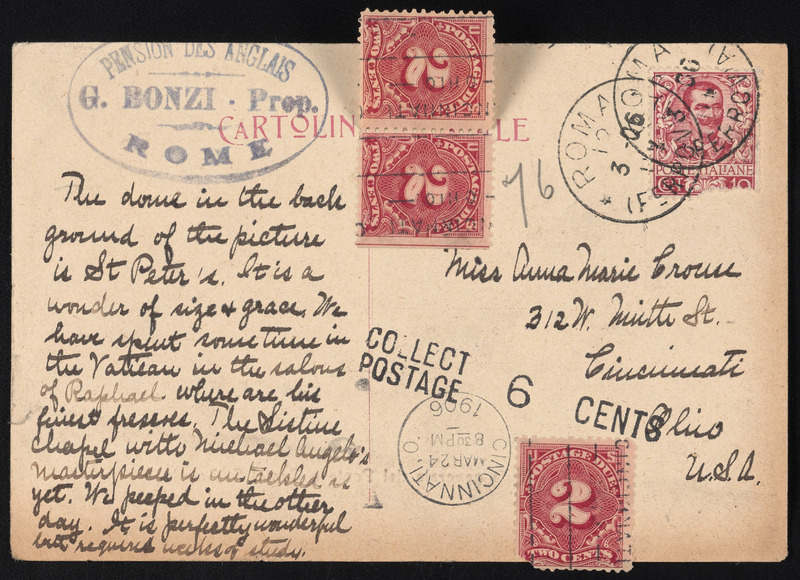 PENSION DES ANGLAIS
G. BONZI - Prop.
ROME
CARTOLIN LE
POSTAGE DUE
2
TWO CENTS
POSTAGE DUE
2
TWO CENTS
76
ROMA
(FERROVIA)
3 - 06
POSTE ITALIANE
10
The dome in the back
ground of the picture
is St Peter's. It is a
wonder of size & grace. We
have spent some time in
the Vatican in the salons
of Raphael where are his
finest frescoes. The Sistine
Chapel with Michael Angelo's
masterpieces is untackled as
yet. We peeped in the other
day. It is perfectly wonderful
but requires weeks of study.
Miss Anna Marie Crouse
312 W. St.
Cincinnati
Ohio
U.S.A.
COLLECT
POSTAGE 6 CENTS
CINCINNATI, O.
MAR 24
830PM
1906
POSTAGE DUE
2
TWO CENTS